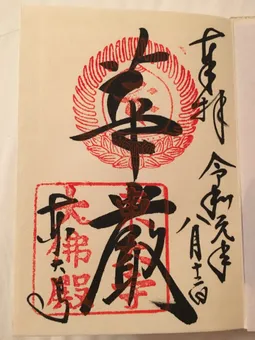 奉拝
令和元年
八月十二日
華嚴
東大寺
大佛殿